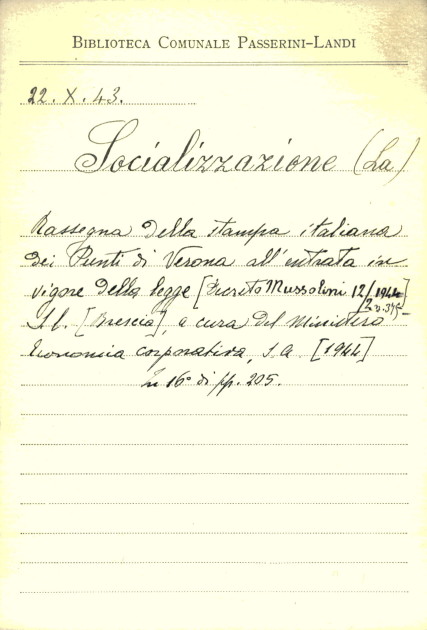 BIBLIOTECA COMUNALE PASSERINI-LANDI
22. X. 43.
Socializzazione (La)
Rassegna della stampa italiana
dei Punti di Verona all'entrata in
vigore della legge [Decreto Mussolini 12/2 1944
n. 375]
S.l. [Brescia], a cura del Ministero
Economia corporativa, s.a. [1944]
in 16° di pp. 205.